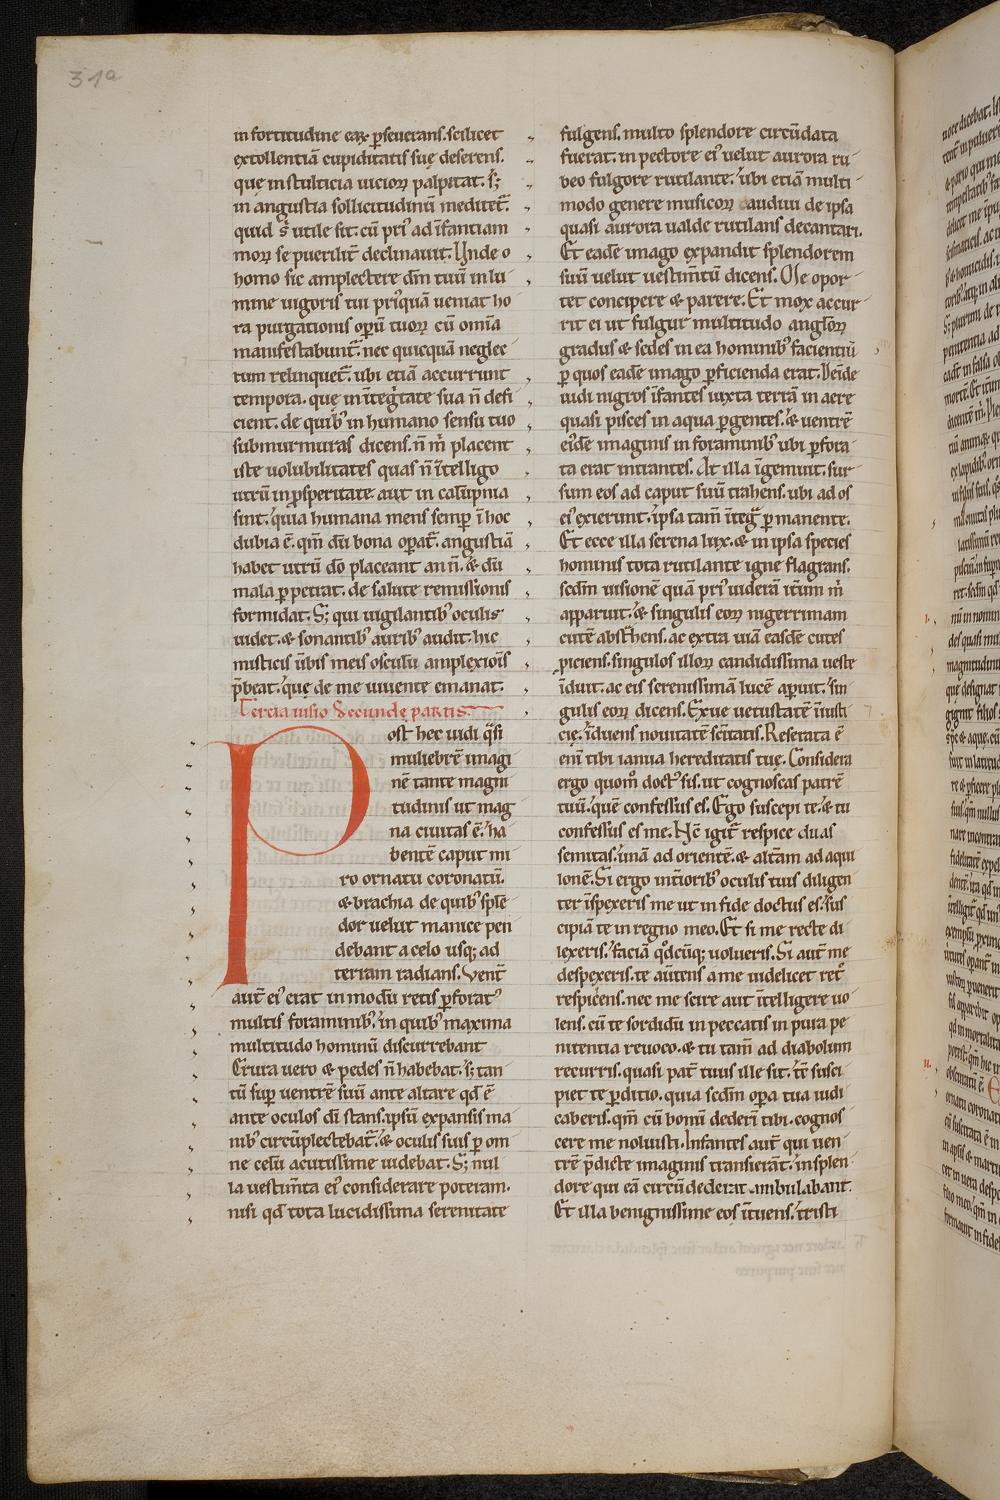 31a
in fortitudine eaꝝ ꝑseuerans. scilicet
extollentiā cupiditatis suę deserens.
quę in stulticia uicioꝝ palpitat. s;
in angustia sollicitudinū meditet̄.
quid s̄ utile sit. cū pri᷒ ad īfantiam
moꝝ se puerilit̄ declinauit. Unde o
homo sic amplectere dm̄ tuū in lu
mine uigoris tui priꝰquā ueniat ho
ra purgationis opū tuoꝝ cū omīa
manifestabunt̄. nec quicquā neglec
tum relinquet̄. ubi etiā accurrunt
tempora. quę in īteg̍tate sua n̄ defi
cient. de quibꝰ in humano sensu tuo
submurmuras dicens. n̄ m̄ placent
iste uolubilitates quas n̄ ītelligo
utrū in ꝓsperitate aut in calūpnia
sint. quia humana mens semꝑ ī hoc
dubia ē. qm̄ dū bona oꝑat̄. angustiā
habet utrū dō placeant an n̄. & dū
mala ꝑpetrat. de salute remissionis
formidat. S; qui uigilantibꝰ oculis
uidet. & sonantibꝰ auribꝰ audit. hic
misticis ūbis meis osculū amplexiōis
p̄beat. quę de me uiuente emanat.
Tercia uisio Secundę partis.
Post hec uidi q̄si
muliebrē imagi
nē tante magni
tudinis ut mag
na ciuitas ē. ha
bentē caput mi
ro ornatu coronatū.
& brachia de quibꝰ splē
dor uelut manice pen
debant a celo usq; ad
terram radians. Vent̄
aut̄ eiꝰ erat in modū retis ꝑforatꝰ
multis foraminibꝰ. in quibꝰ maxima
multitudo hominū discurrebant
Crura uero & pedes n̄ habebat. s; tan
tū suꝑ uentrē suū ante altare qd̄ ē
ante oculos dī stans. ipsū expansis ma
nibꝰ circūplectebat̄. & oculis suis ꝑ om
ne celū acutissime uidebat. S; nul
la uestim̄ta eiꝰ considerare poteram.
nisi qd̄ tota lucidissima serenitate
fulgens. multo splendore circūdata
fuerat. in pectore eiꝰ uelut aurora ru
beo fulgore rutilante. ubi etiā multi
modo genere musicoꝝ audiui de ipsa
quasi aurora ualde rutilans decantari.
Et eadē imago expandit splendorem
suū uelut uestim̄tū dicens. Me opor
tet concipere & parere. Et mox accur
rit ei ut fulgur multitudo angl̄oꝝ
gradus & sedes in ea hominibꝰ facientiū
ꝑ quos eadē imago ꝑficienda erat. Deīde
uidi nigros īfantes iuxta terrā in aere
quasi pisces in aqua ꝑgentes. & uentrē
eiꝰdē imaginis in foraminibꝰ ubi ꝑfora
ta erat intrantes. At illa īgemuit. sur
sum eos ad caput suū trahens. ubi ad os
eiꝰ exierunt. ipsa tam̄ īteg̍ ꝑmanente.
Et ecce illa serena lux. & in ipsa species
hominis tota rutilante igne flagrans.
scd̄m uisionē quā priꝰ uideram it̄um m̄
apparuit. & singulis eoꝝ nigerrimam
cutē abst̄hens. ac extra uiā easdē cutes
piciens. singulos illoꝝ candidissima ueste
īduit. ac eis serenissimā lucē aperuit. sin
gulis eoꝝ dicens. Exue uetustatē iniusti
cię. īduens nouitatē sc̄itatis. Reserata ē
enī tibi ianua hereditatis tuę. Considera
ergo quom̄ doctꝰ sis. ut cognoscas patrē
tuū. quē confessus es. Ego suscepi te. & tu
confessus es me. Nc̄ igit̄ respice duas
semitas. unā ad orientē. & altam ad aqui
lonē. Si ergo int̄ioribꝰ oculis tuis diligen
ter īspexeris me ut in fide doctus es. sus
cipiā te in regno meo. Et si me recte di
lexeris. faciā qd̄cūq; uolueris. Si aut̄ me
despexeris. te auertens a me uidelicet ret̊
respiciens. nec me scire aut ītelligere uo
lens. cū te sordidū in peccatis in pura pe
nitentia reuoco. & tu tam̄ ad diabolum
recurris. quasi pat̄ tuus ille sit. tē susci
piet te ꝑditio. quia scd̄m oꝑa tua iudi
caberis. qm̄ cū bonū dederī tibi. cognos
cere me noluisti. Infantes aut̄ qui uen
trē p̄dicte imaginis transierāt. in splen
dore qui eā circūdederat ambulabant.
Et illa benignissime eos ītuens. tristi